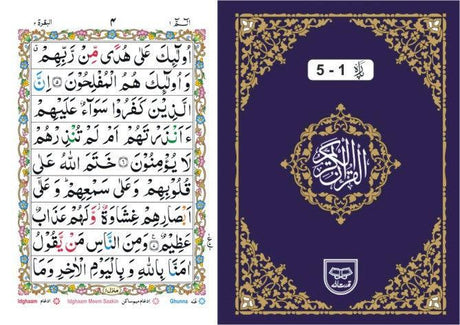 الٓمّٓ ١ ٤ البقرة ٢
اُولٰٓئِكَ عَلٰى هُدًى مِّنْ رَّبِّهِمْ ۙ
وَاُولٰٓئِكَ هُمُ الْمُفْلِحُوْنَ ۝٥ اِنَّ
الَّذِيْنَ كَفَرُوْا سَوَآءٌ عَلَيْهِمْ
ءَاَنْذَرْتَهُمْ اَمْ لَمْ تُنْذِرْهُمْ
لَا يُؤْمِنُوْنَ ۝٦ خَتَمَ اللّٰهُ عَلٰى
قُلُوْبِهِمْ وَعَلٰى سَمْعِهِمْ ؕ وَعَلٰٓى
اَبْصَارِهِمْ غِشَاوَةٌ وَّلَهُمْ عَذَابٌ
عَظِيْمٌ ۝٧ وَمِنَ النَّاسِ مَنْ يَّقُوْلُ
اٰمَنَّا بِاللّٰهِ وَبِالْيَوْمِ الْاٰخِرِ وَمَا
Idghaam ادغام Idghaam Meem Saakin ادغام میم ساکن Ghunna غنہ
پارہ 1 - 5
القرآن الكريم